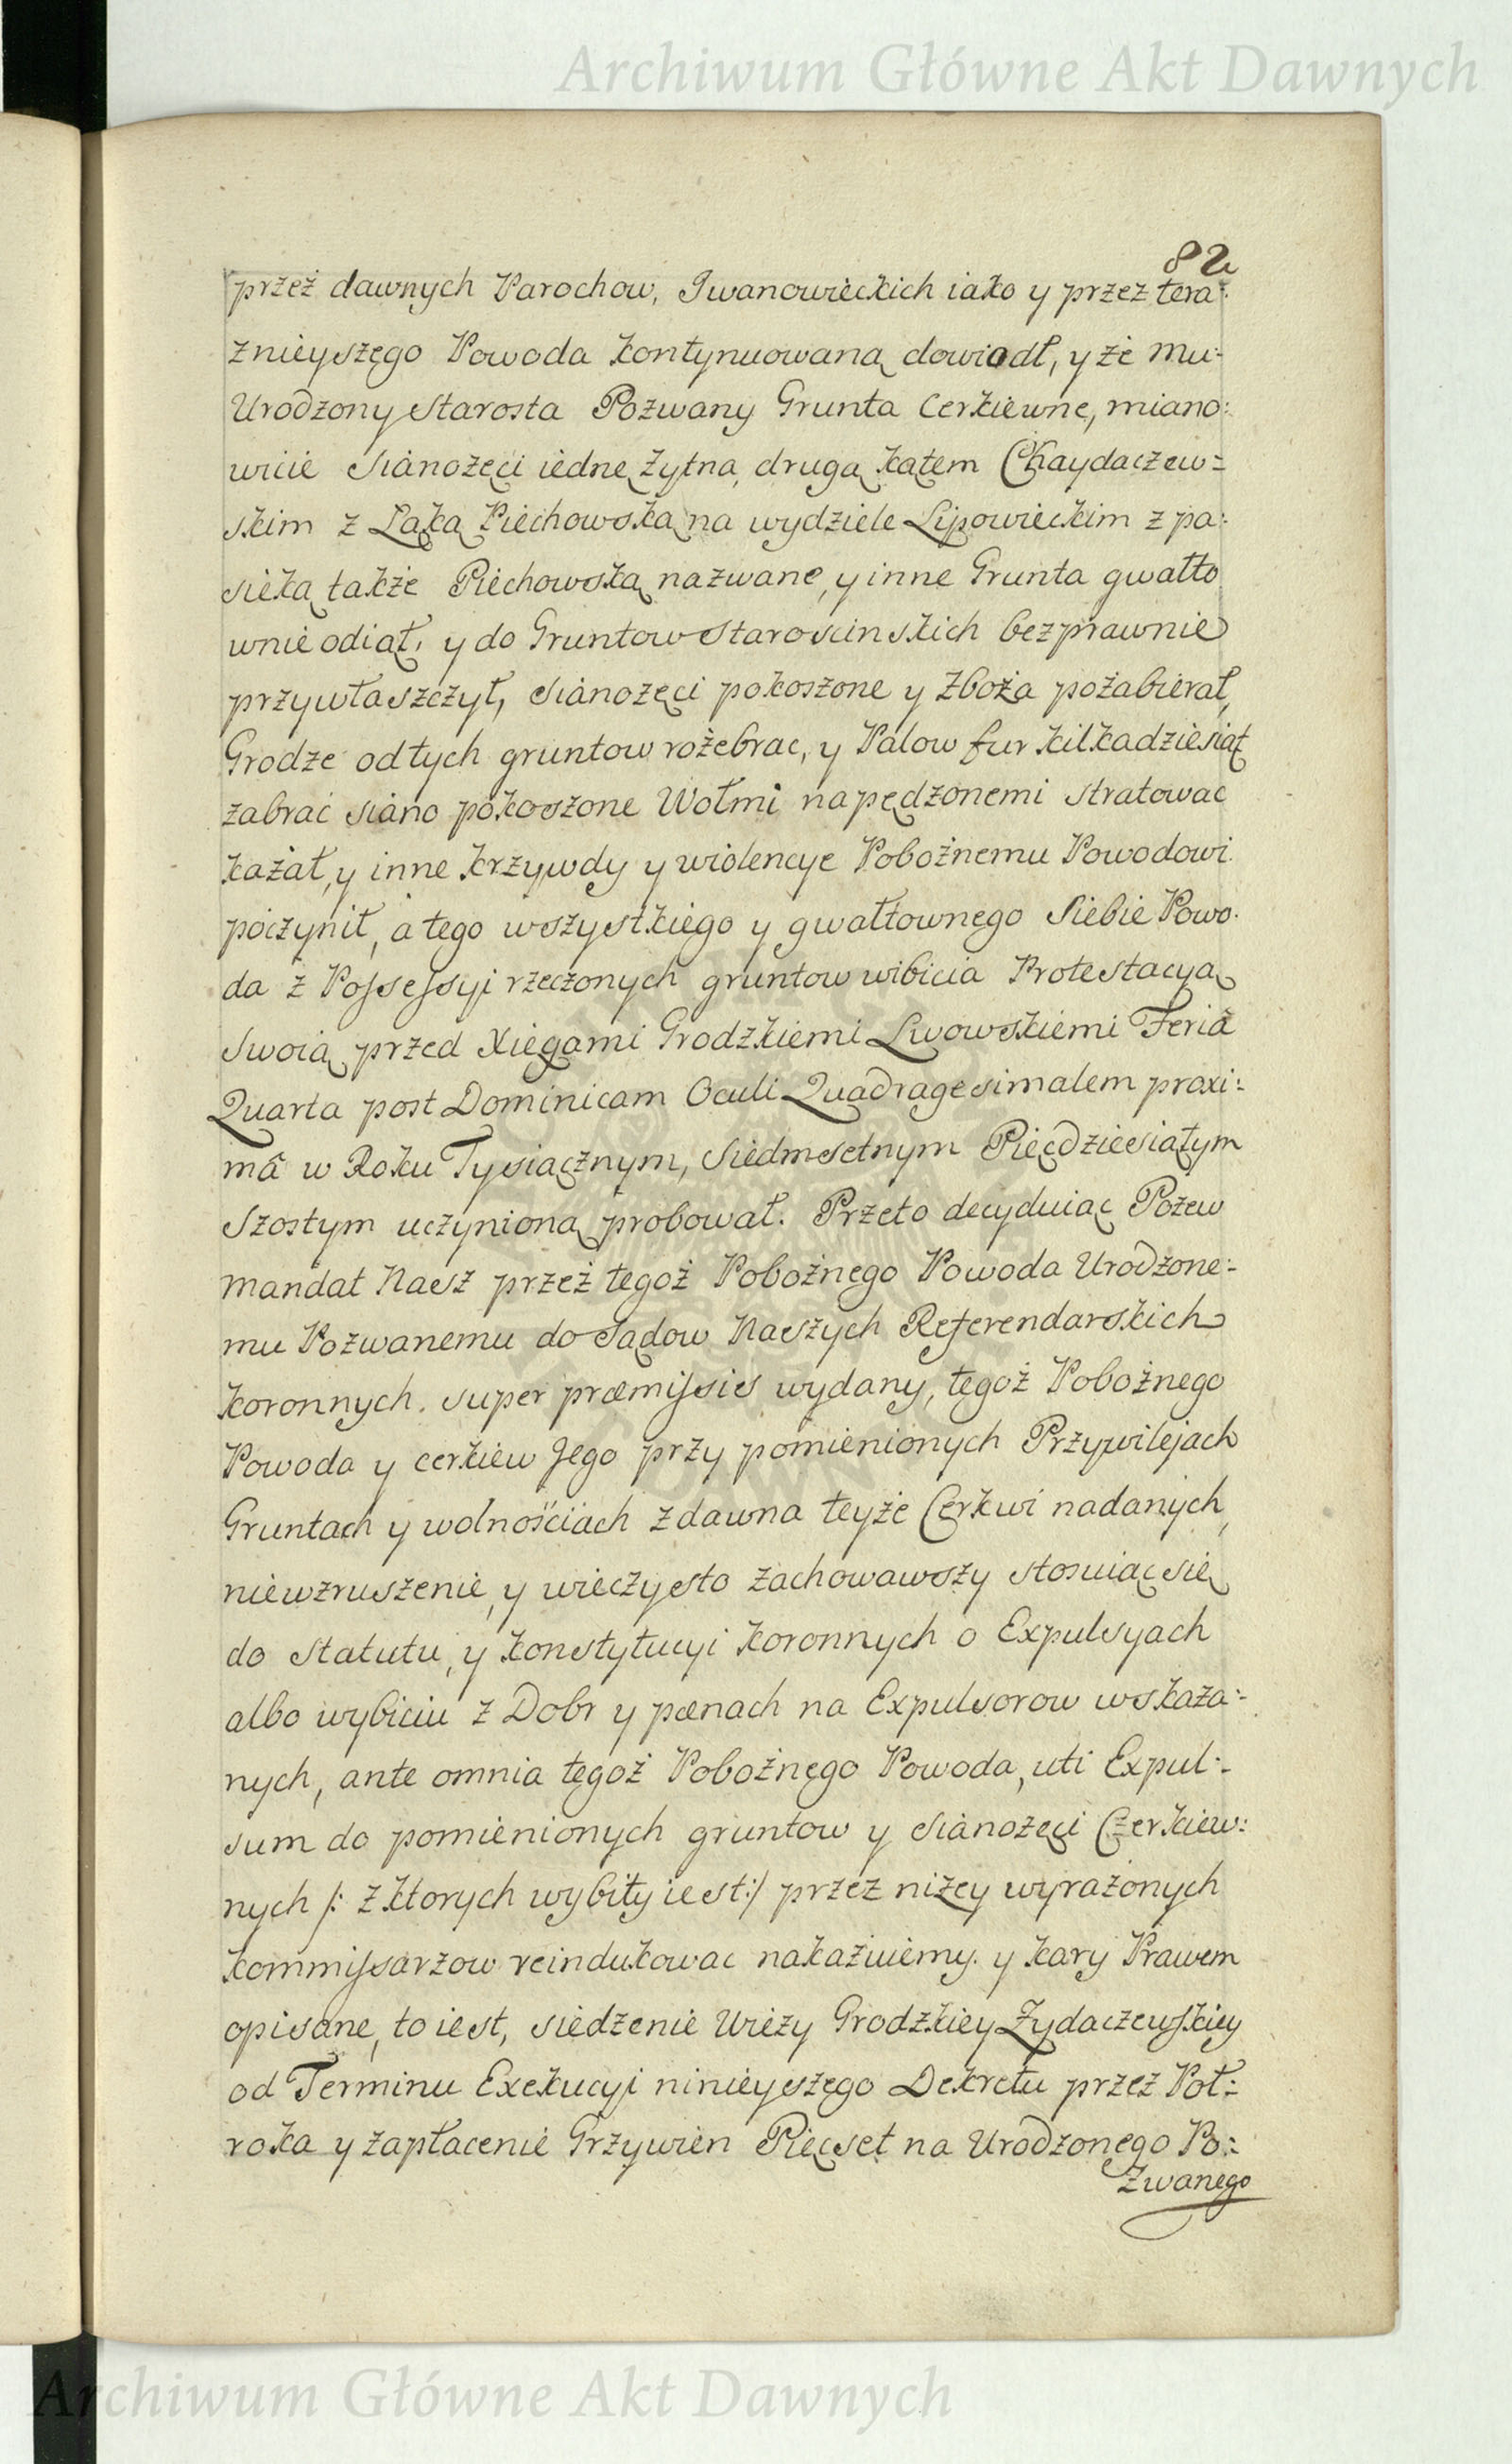 Archiwum Główne Akt Dawnych
82
przeż dawnych Parochow, Iwanowieckich iako y przez tera:
znieyszęgo Powoda kontynuowaną dowiodł, y że mu:
Urodzony Starosta Pozwany Grunta Cerkiewne, miano:
wicie Sianożęci iednę żytną, drugą kątem Chaydaczew:
skim z Łąką Piechowską na wydziele Lipowieckim z pa:
sieką także Piechowską nazwane, y inne Grunta gwałto
wnie odiął, y do Gruntow Staroscinskich bezprawnie
przywłaszczył, Sianożęci pokoszone y Zboża pozabierał,
Grodze od tych gruntow rożebrac, y Palow fur kilkadziesiąt
zabrać siano pokoszone Wołmi napędzonemi stratowac
każał, y inne krzywdy y wiolencye Pobożnemu Powodowi
poczynił, a tego wszystkiego y gwałtownego Siebie Powo.
da z Possessyi rzeczonych gruntow wibicia Protestacyą
Swoią przed Xięgami Grodzkiemi Lwowskiemi Feriâ
Quarta post Dominicam Oculi Quadragesimalem proxi:
mâ w Roku Tysiącznym, Siedmsetnym Pięcdziesiątym
Szostym uczynioną probował. Przeto decyduiąc Pozew
mandat Nasz przeż tegoż Pobożnego Powoda Urodzone:
mu Pozwanemu do Sądow Naszych Referendarskich
koronnych. super præmissis wydany, tegoż Pobożnego
Powoda y cerkiew Jego przy pomienionych Przywilejach
Gruntach y wolnościach zdawna teyże Cerkwi nadanych,
niewzruszenie, y wieczysto zachowawszy stosuiąc się
do Statutu, y konstytucyi koronnych o Expulsyach
albo wybiciu z Dobr y pœnach na Expulsorow wskaza:
nych, ante omnia tegoż Pobożnęgo Powoda, uti Expul:
sum do pomienionych gruntow y Sianożęci Czerkiew:
nych /: z ktorych wybity iest:/ przez niżey wyrażonych
kommissarzow reindukowac nakazuiemy. y kary Prawem
opisane, to iest, siedzenie Wieży Grodzkiey Żydaczewskiey
od Terminu Exekucyi ninieyszęgo Dekretu przez Poł:
roka y zapłacenie Grzywien Pięcset na Urodzonego Po:
zwanego
Archiwum Główne Akt Dawnych